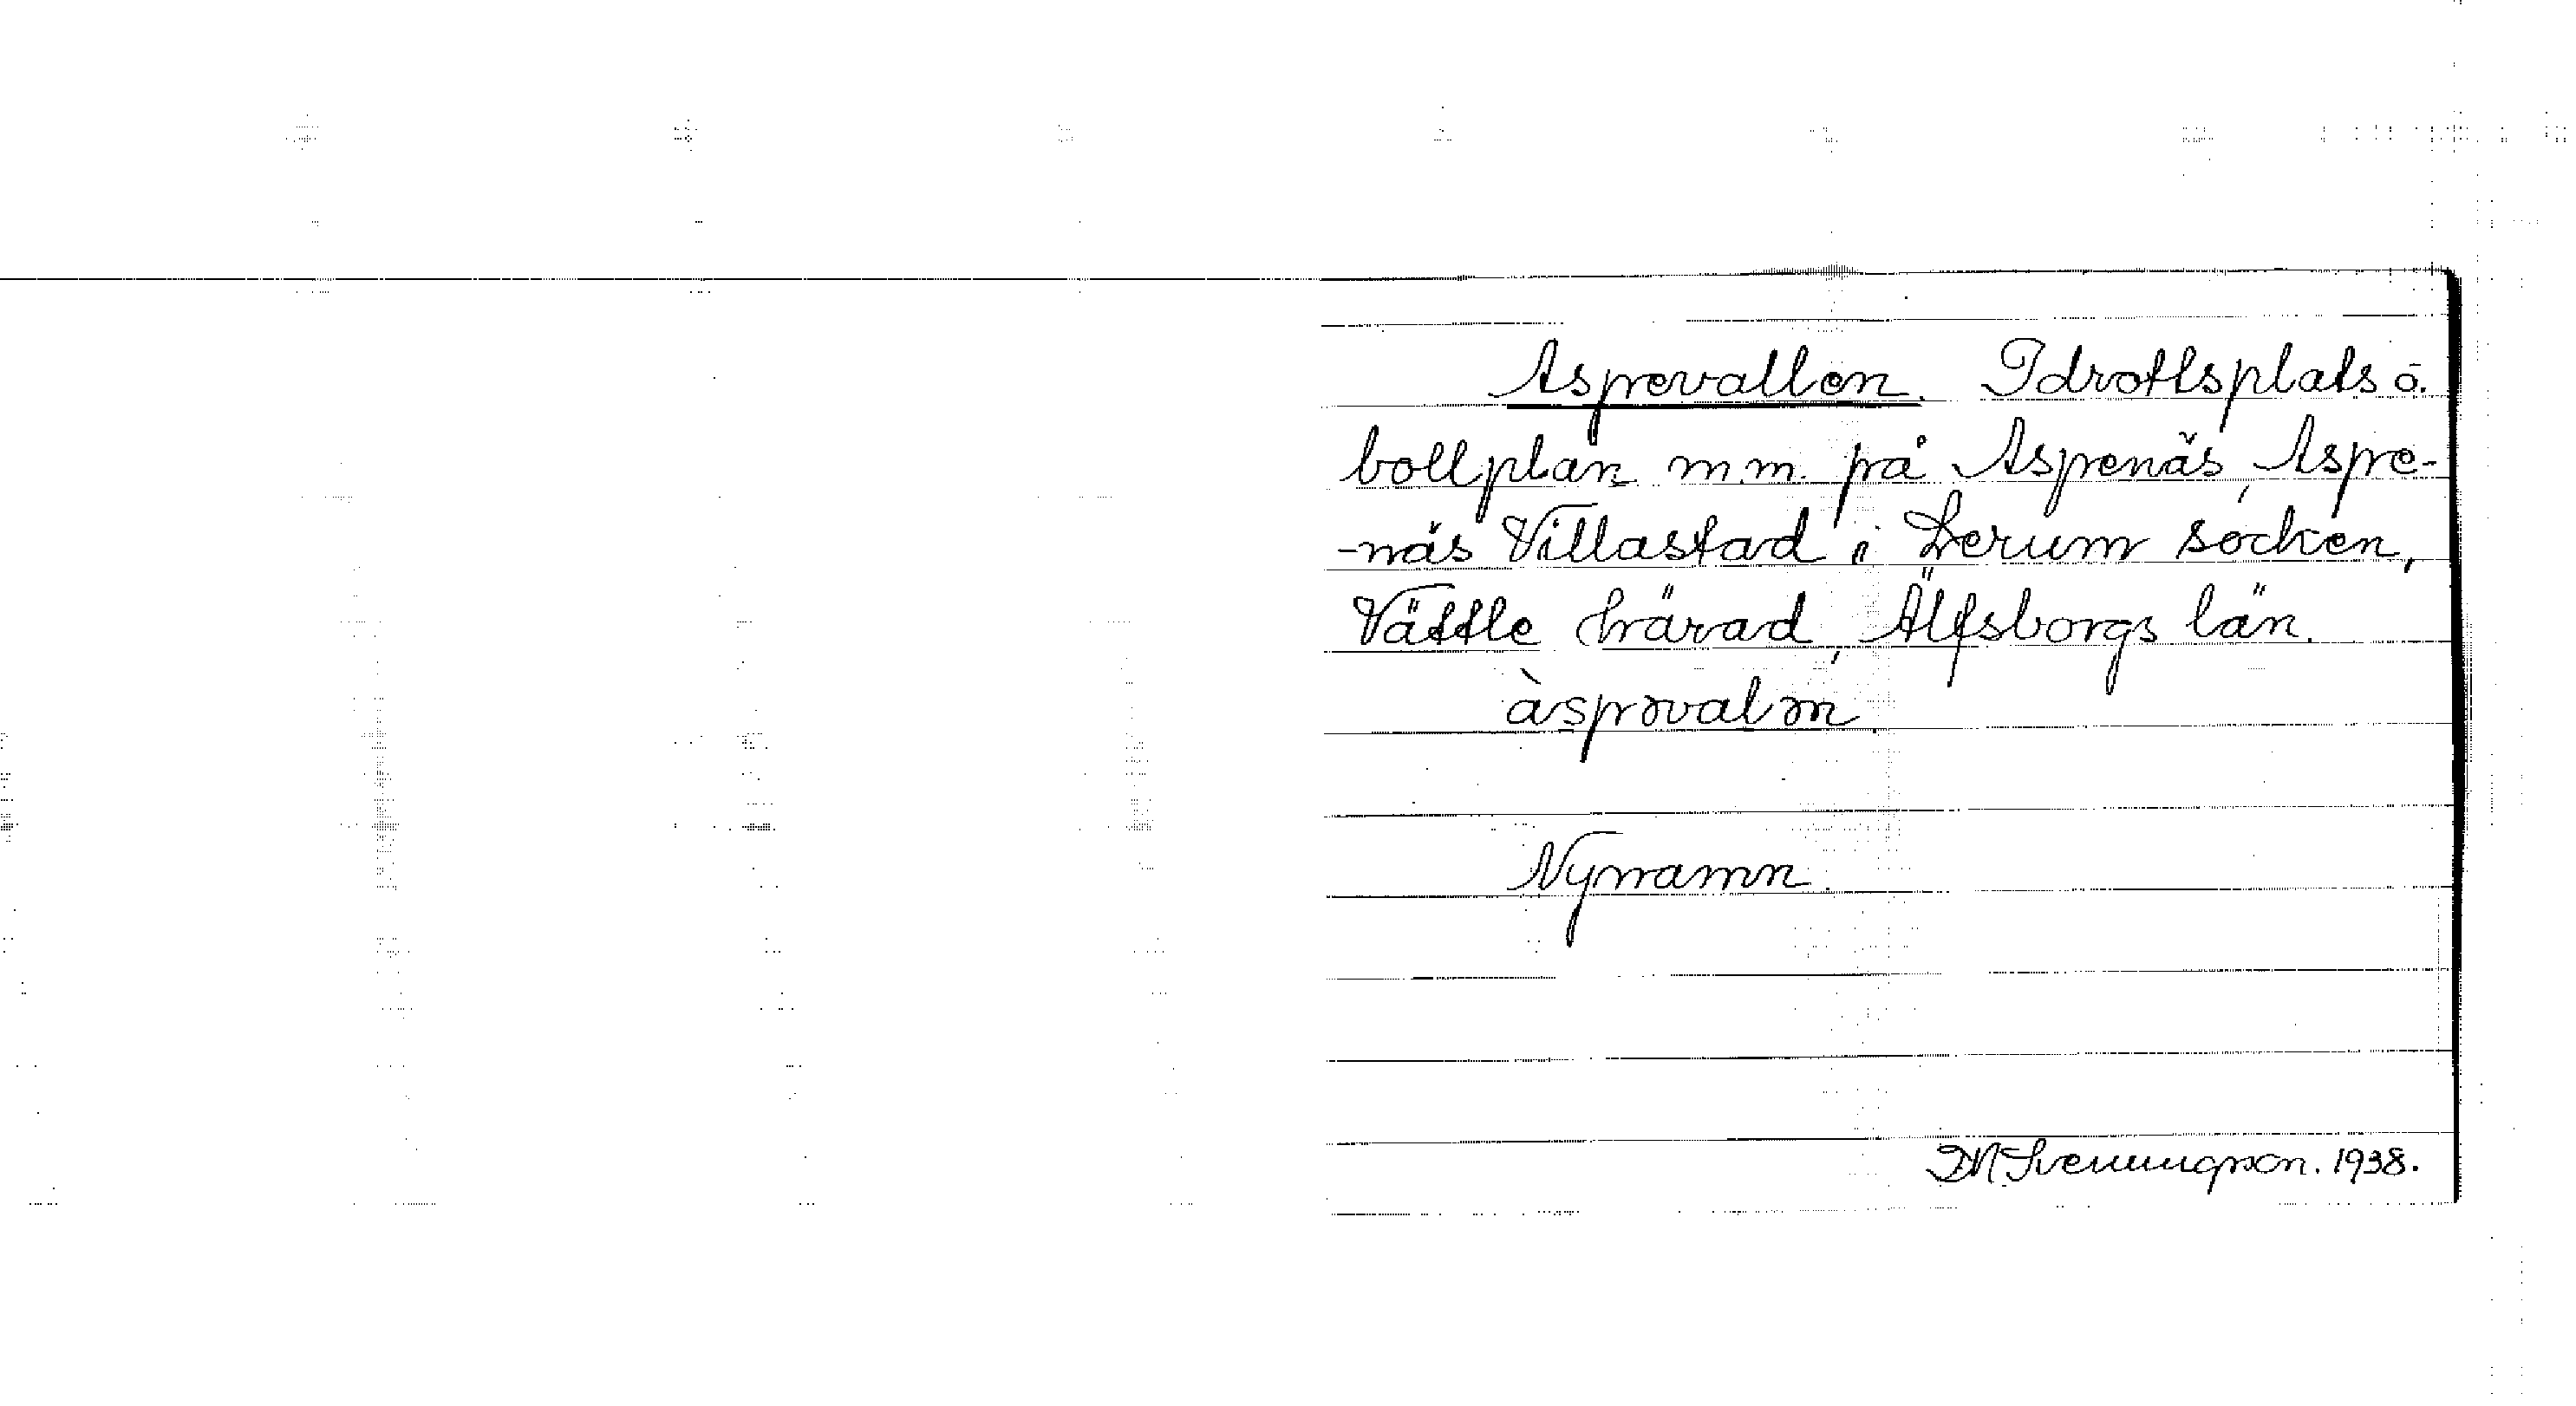 Aspevallen. Idrottsplats o.
bollplan m.m. på Aspenäs, Aspe-
-näs Villastad i Lerum socken,
Vättle härad, Älfsborgs län.
àspəvalən
Nynamn.
D N Svenungson. 1938.